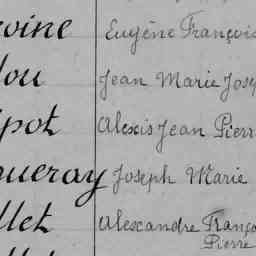 voine Eugène François
lou Jean Marie Jose
pot Alexis Jean Pierr
queray Joseph Marie
llet Alescandre Franço
Pierre